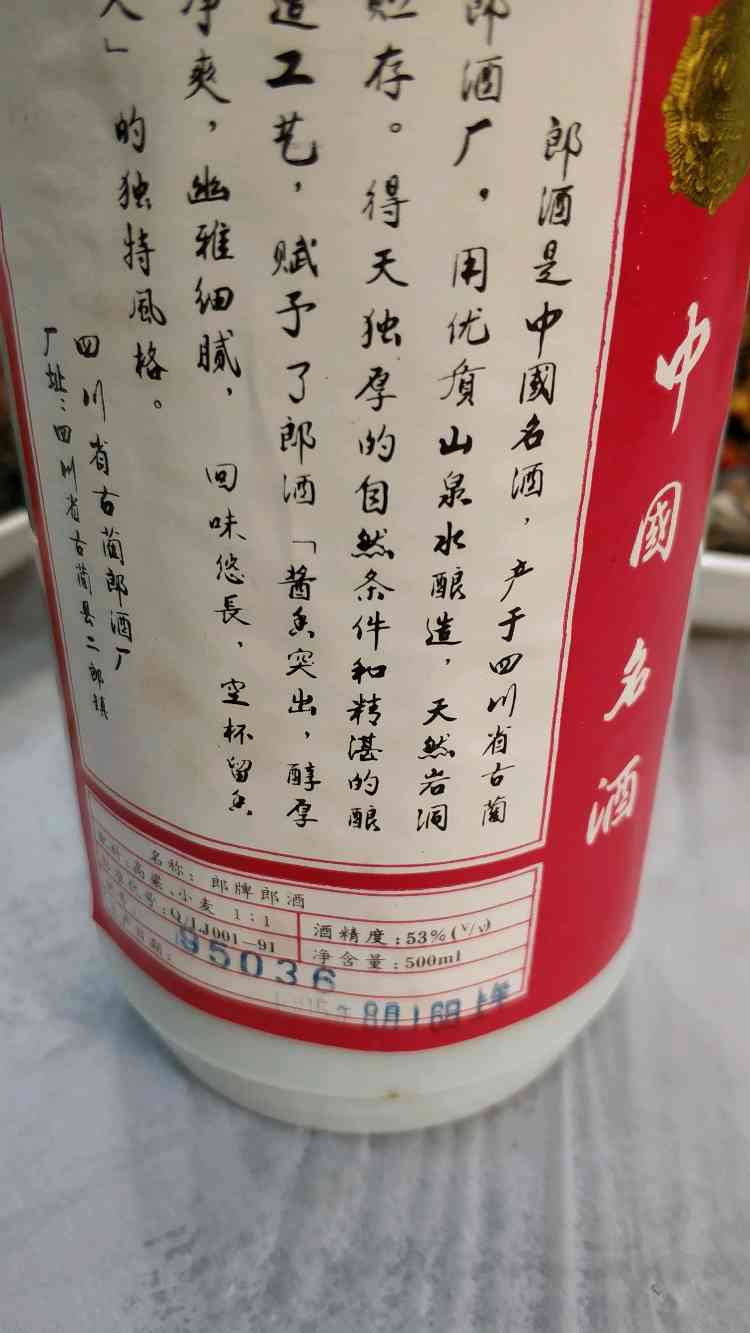 中國名酒
郎酒是中國名酒，产于四川省古蔺
郎酒厂。用优质山泉水酿造，天然岩洞
贮存。得天独厚的自然条件和精湛的酿
造工艺，赋予了郎酒「酱香突出，醇厚
净爽，幽雅细腻，回味悠長，空杯留香
人」的独特風格。
四川省古蔺郎酒厂
厂址：四川省古蔺县二郎镇
名称：郎牌郎酒
配料：高粱、小麦 1:1
酒精度：53%(V/V)
Q/LJ001-91
净含量：500ml
95036
8月16日上午